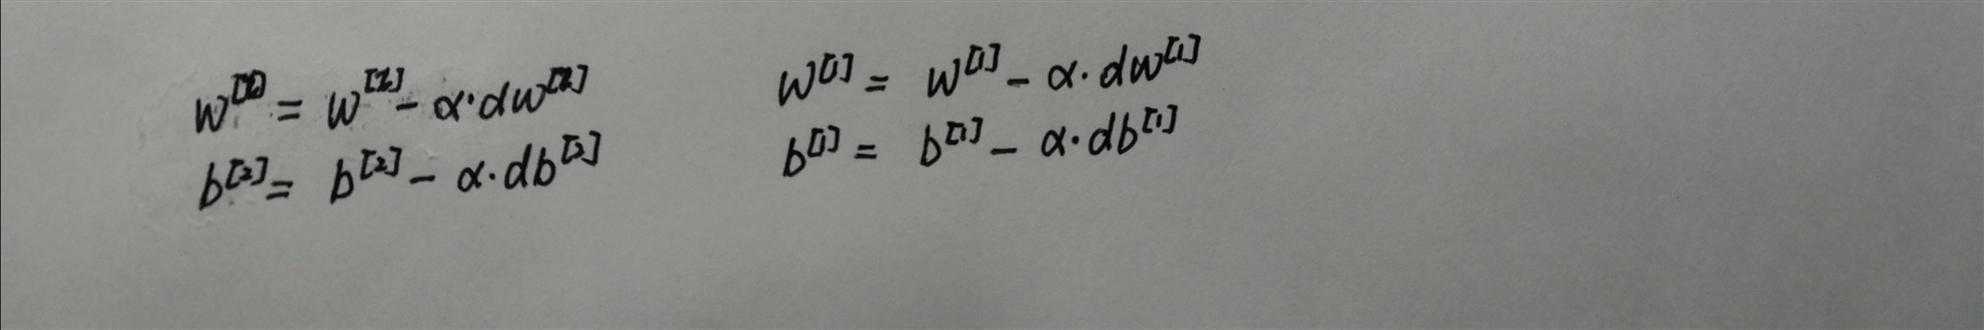 w^[2] = w^[2] - α·dw^[2]
b^[2] = b^[2] - α·db^[2]
w^[1] = w^[1] - α·dw^[1]
b^[1] = b^[1] - α·db^[1]